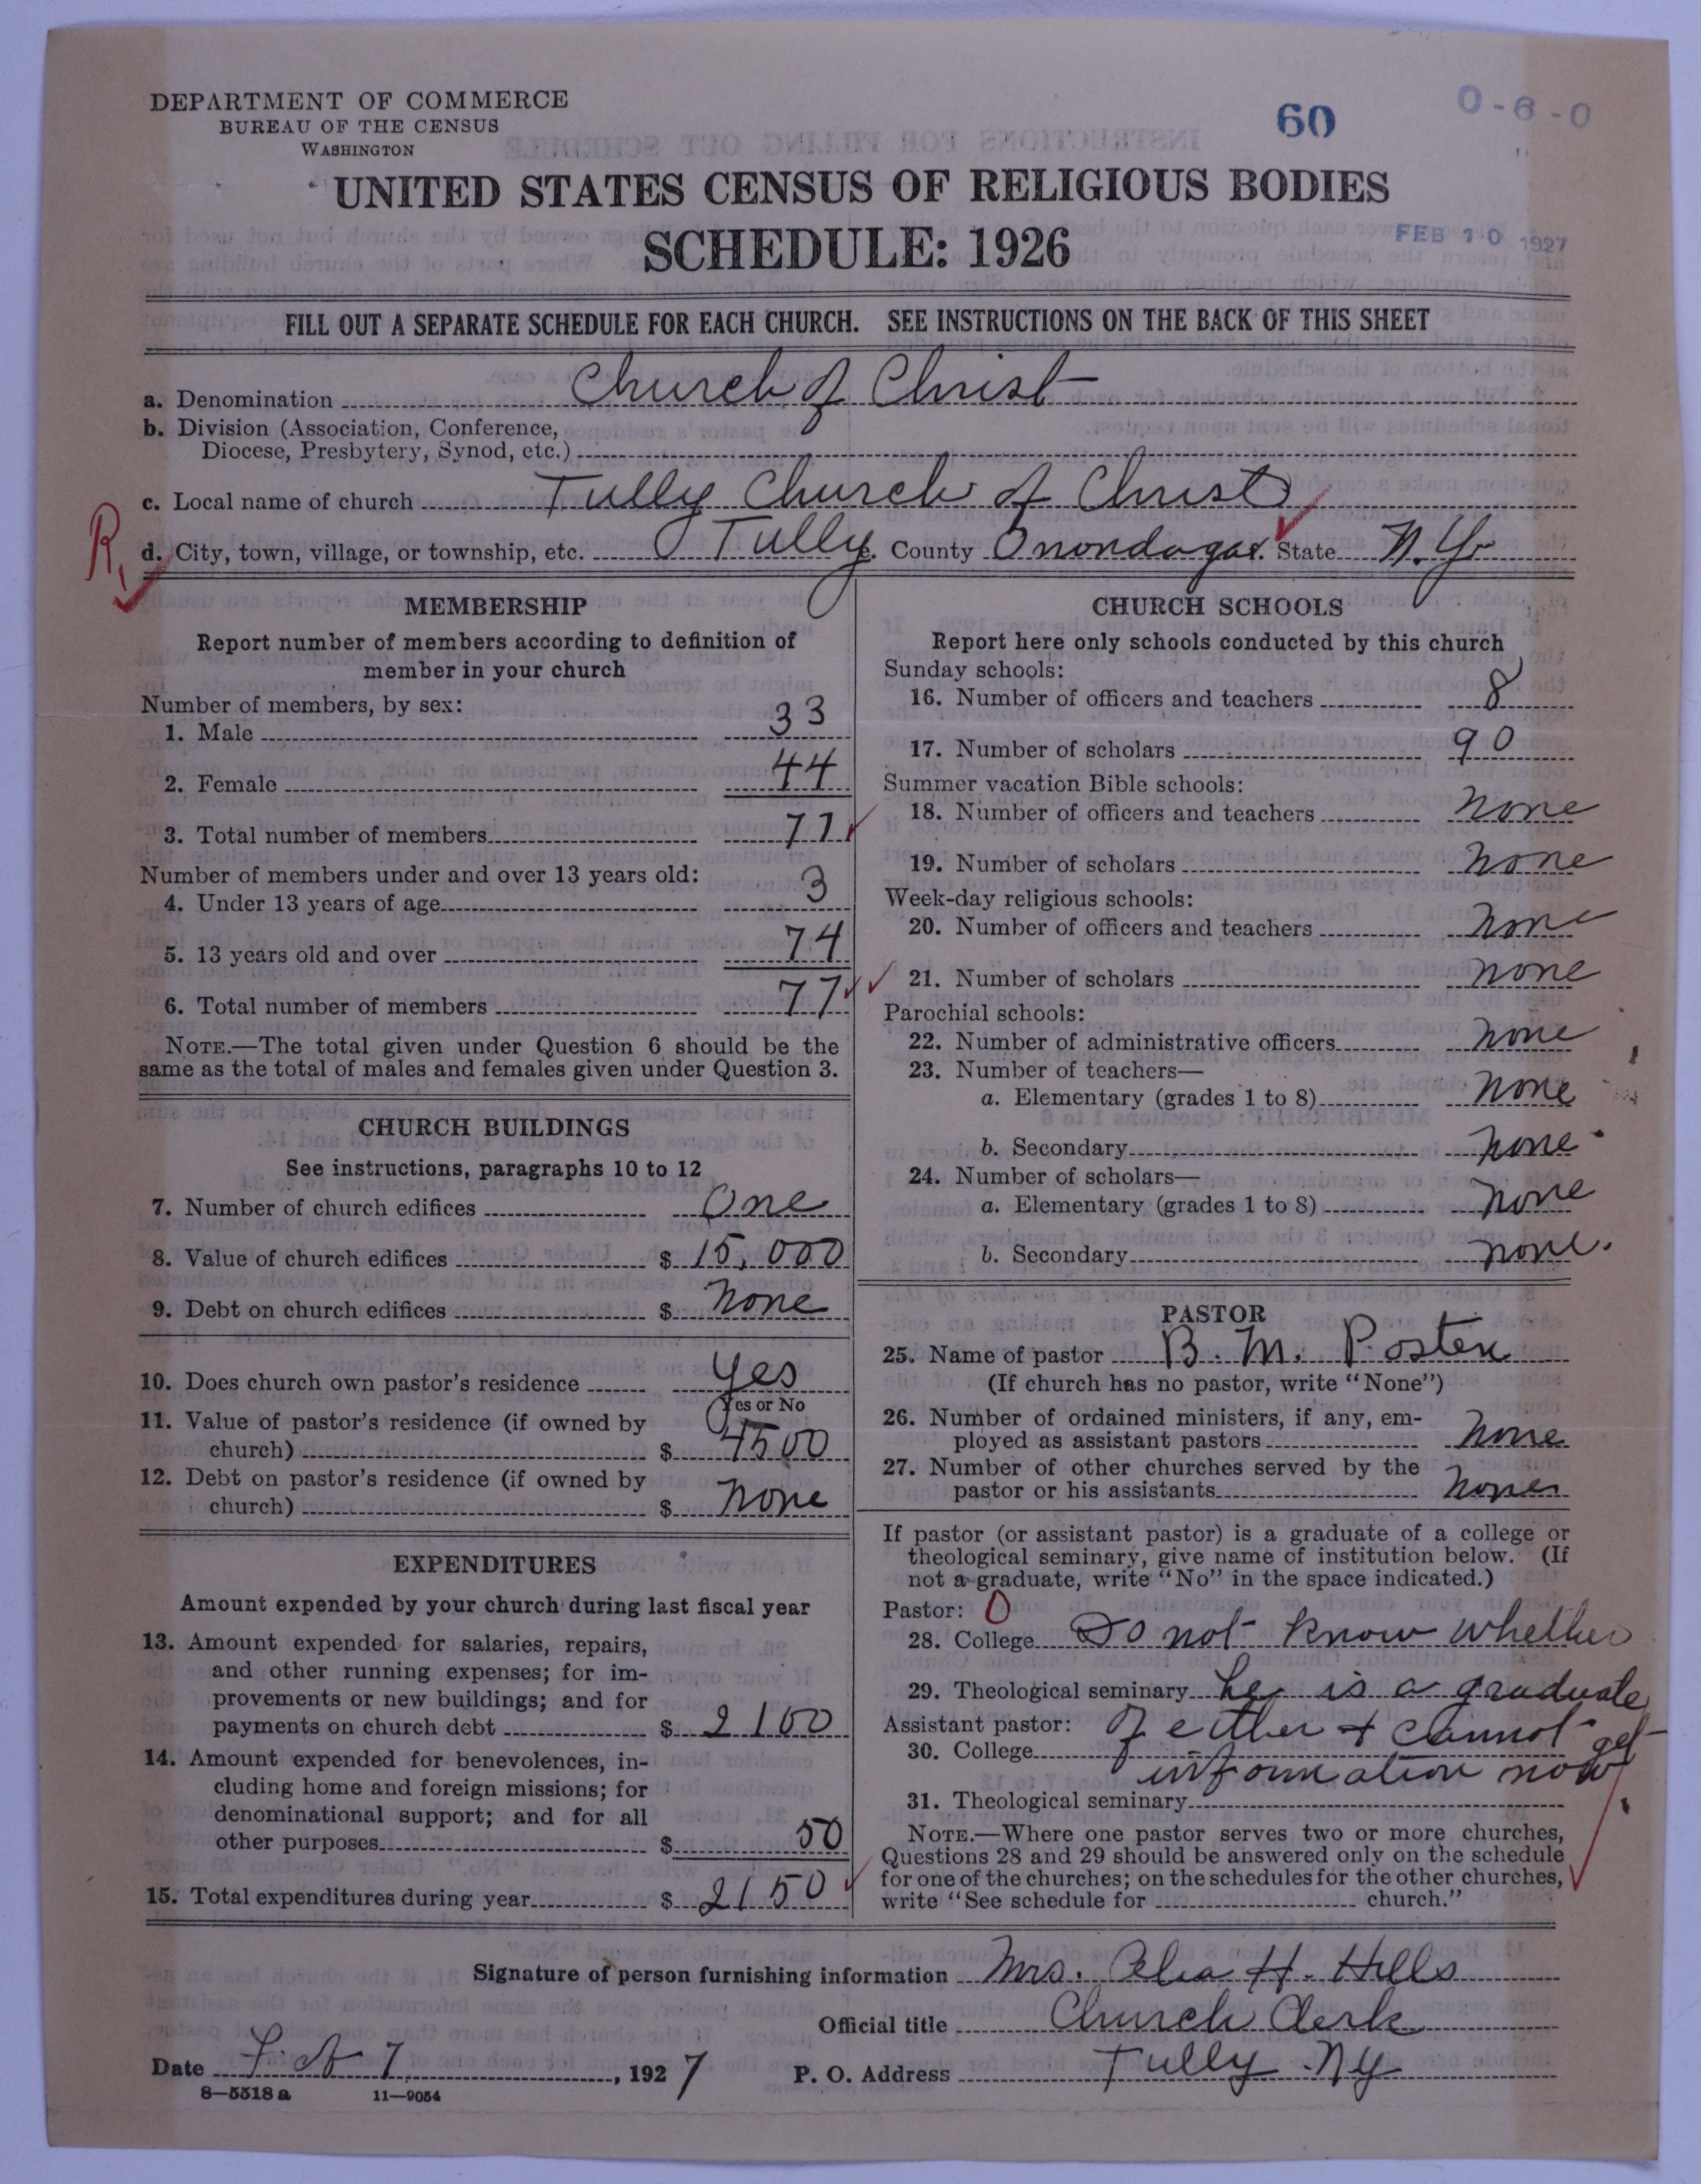 DEPARTMENT OF COMMERCE
BUREAU OF THE CENSUS
WASHINGTON
60
0-6-0
UNITED STATES CENSUS OF RELIGIOUS BODIES
SCHEDULE: 1926
FEB 10 1927
FILL OUT A SEPARATE SCHEDULE FOR EACH CHURCH. SEE INSTRUCTIONS ON THE BACK OF THIS SHEET
a. Denomination Church of Christ
b. Division (Association, Conference,
Diocese, Presbytery, Synod, etc.)
c. Local name of church Tully Church of Christ
R
d. City, town, village, or township, etc. Tully e. County Onondaga f. State N.Y.
MEMBERSHIP
Report number of members according to definition of
member in your church
Number of members, by sex:
1. Male 33
2. Female 44
3. Total number of members 77
Number of members under and over 13 years old:
4. Under 13 years of age 3
5. 13 years old and over 74
6. Total number of members 77
NOTE.—The total given under Question 6 should be the
same as the total of males and females given under Question 3.
CHURCH BUILDINGS
See instructions, paragraphs 10 to 12
7. Number of church edifices One
8. Value of church edifices $ 15,000
9. Debt on church edifices $ none
10. Does church own pastor's residence Yes
Yes or No
11. Value of pastor's residence (if owned by
church) $ 4500
12. Debt on pastor's residence (if owned by
church) $ none
EXPENDITURES
Amount expended by your church during last fiscal year
13. Amount expended for salaries, repairs,
and other running expenses; for im-
provements or new buildings; and for
payments on church debt $ 2100
14. Amount expended for benevolences, in-
cluding home and foreign missions; for
denominational support; and for all
other purposes $ 50
15. Total expenditures during year $ 2150
CHURCH SCHOOLS
Report here only schools conducted by this church
Sunday schools:
16. Number of officers and teachers 8
17. Number of scholars 90
Summer vacation Bible schools:
18. Number of officers and teachers none
19. Number of scholars none
Week-day religious schools:
20. Number of officers and teachers none
21. Number of scholars none
Parochial schools:
22. Number of administrative officers none
23. Number of teachers—
a. Elementary (grades 1 to 8) none
b. Secondary none
24. Number of scholars—
a. Elementary (grades 1 to 8) none
b. Secondary none.
PASTOR
25. Name of pastor B. M. Posten
(If church has no pastor, write "None")
26. Number of ordained ministers, if any, em-
ployed as assistant pastors none
27. Number of other churches served by the
pastor or his assistants none
If pastor (or assistant pastor) is a graduate of a college or
theological seminary, give name of institution below. (If
not a graduate, write "No" in the space indicated.)
Pastor: 0
28. College Do not know whether
29. Theological seminary he is a graduate
Assistant pastor: of either + cannot get
30. College
information now
31. Theological seminary
NOTE.—Where one pastor serves two or more churches,
Questions 28 and 29 should be answered only on the schedule
for one of the churches; on the schedules for the other churches,
write "See schedule for church."
Signature of person furnishing information Mrs. H. Hills
Official title Church Clerk
Date Feb 7, 1927 P. O. Address Tully NY
8-5518a 11-9054